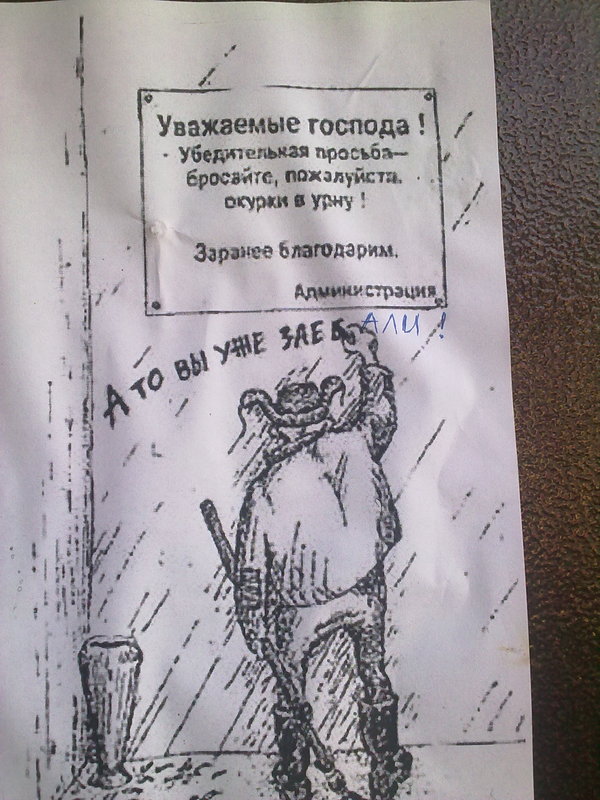 Уважаемые господа !
Убедительная просьба—
бросайте, пожалуйста.
окурки в урну !
Заранее благодарим.
Администрация
А ТО ВЫ УЖЕ ЗАЕБАЛИ !